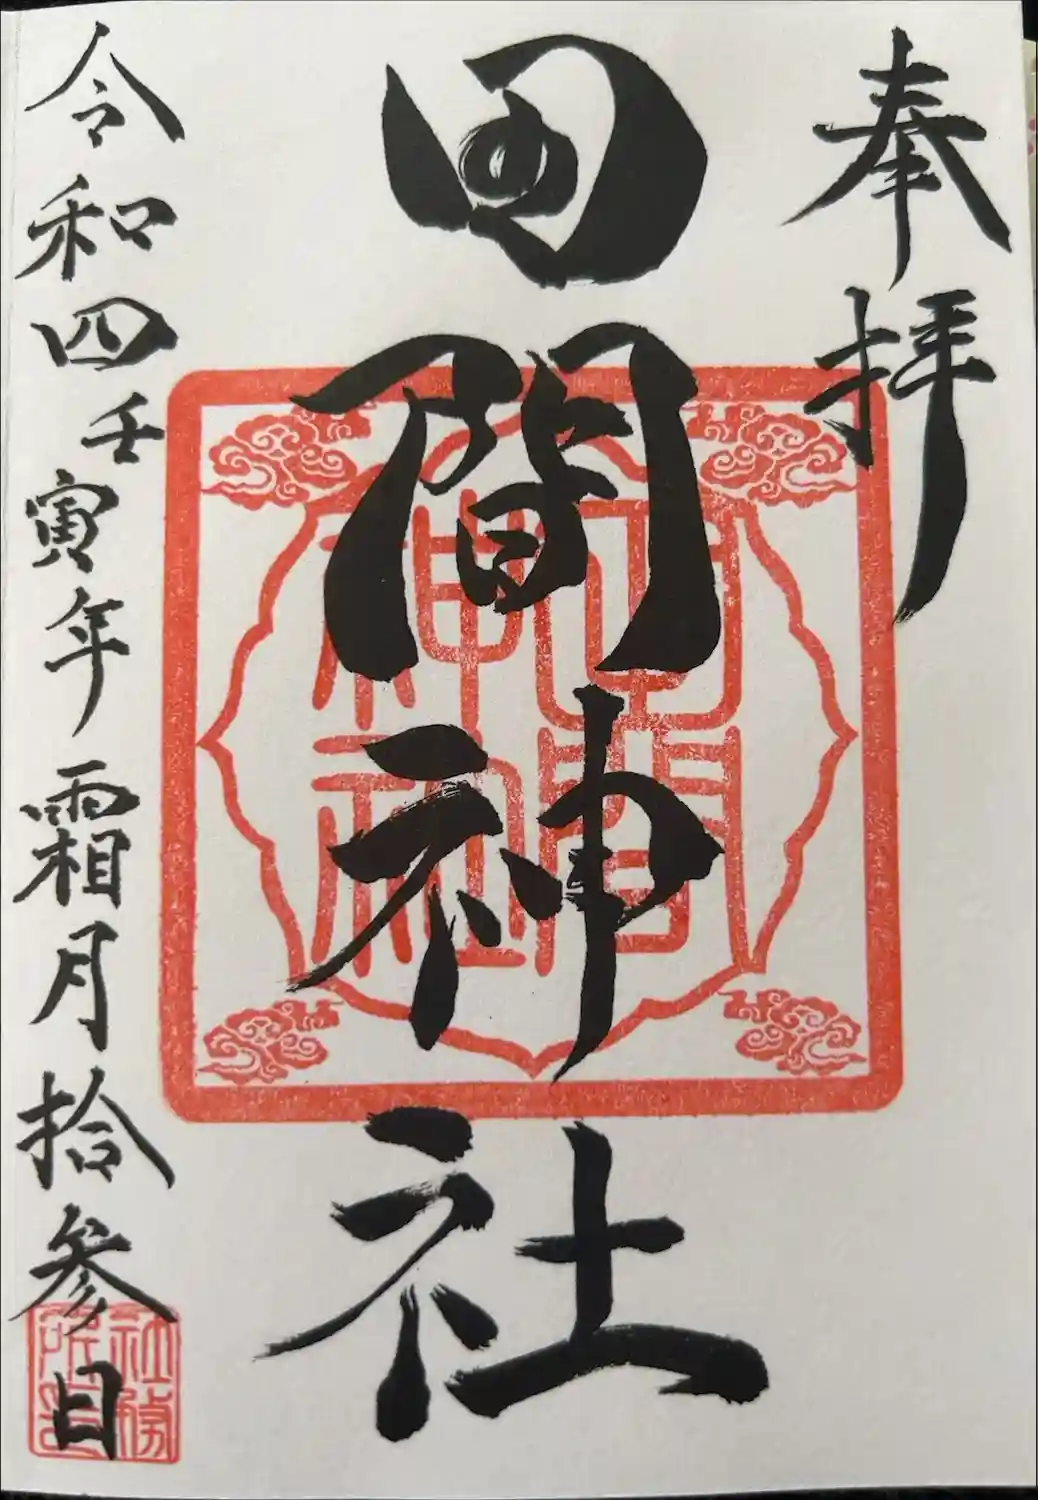 奉拝
田間神社
令和四壬寅年霜月拾参日
社務
所印